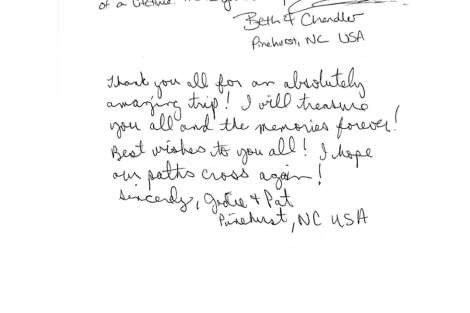 of a lifetime.
Beth & Chandler
Pinehurst, NC USA
Thank you all for an absolutely
amazing trip! I will treasure
you all and the memories forever!
Best wishes to you all! I hope
our paths cross again!
Sincerely, Jodie & Pat
Pinehurst, NC USA